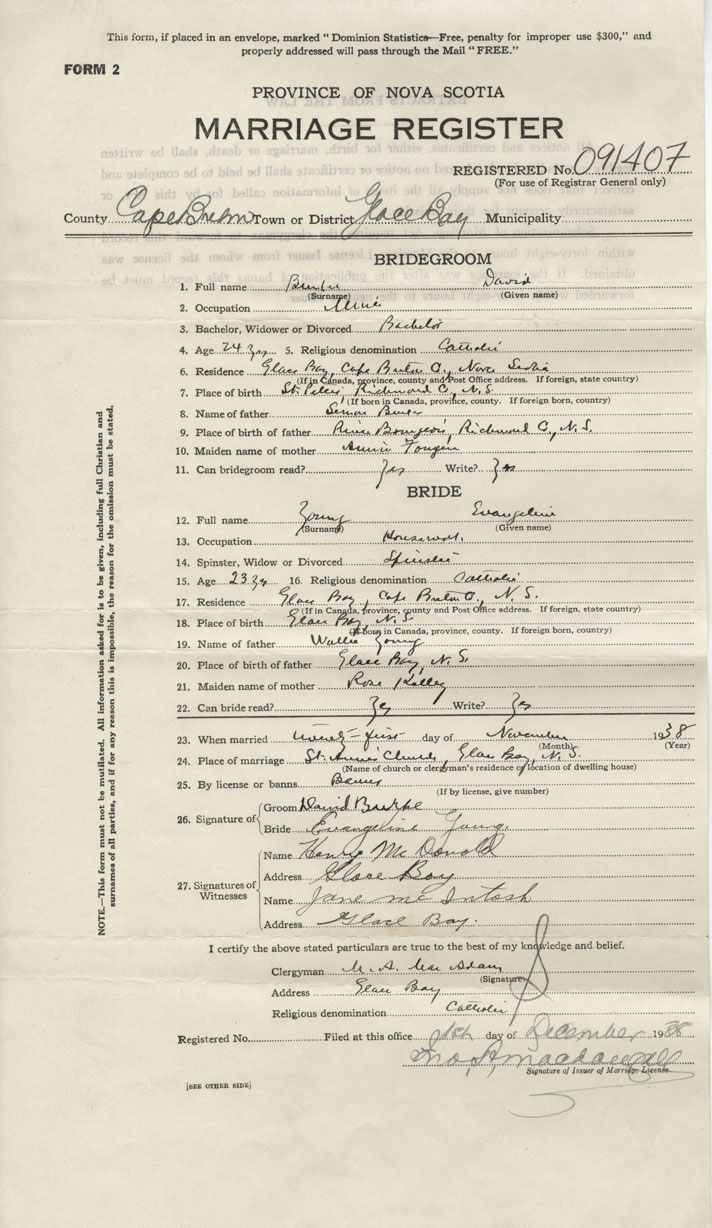 This form, if placed in an envelope, marked "Dominion Statistics—Free, penalty for improper use $300," and
properly addressed will pass through the Mail "FREE."
FORM 2
PROVINCE OF NOVA SCOTIA
MARRIAGE REGISTER
REGISTERED No. 091407
(For use of Registrar General only)
County Cape Breton Town or District Glace Bay Municipality
BRIDEGROOM
1. Full name David
(Surname) (Given name)
2. Occupation
3. Bachelor, Widower or Divorced Bachelor
4. Age 24 yrs 5. Religious denomination Catholic
6. Residence Glace Bay, Cape Breton Co., Nova Scotia
(If in Canada, province, county and Post Office address. If foreign, state country)
7. Place of birth St. Peters, Richmond Co., N.S.
(If born in Canada, province, county. If foreign born, country)
8. Name of father
9. Place of birth of father River Bourgeois, Richmond Co., N.S.
10. Maiden name of mother Annie
11. Can bridegroom read? Yes Write? Yes
BRIDE
12. Full name Young Evangeline
(Surname) (Given name)
13. Occupation Housework
14. Spinster, Widow or Divorced Spinster
15. Age 23 yrs 16. Religious denomination Catholic
17. Residence Glace Bay, Cape Breton Co., N.S.
(If in Canada, province, county and Post Office address. If foreign, state country)
18. Place of birth Glace Bay, N.S.
(If born in Canada, province, county. If foreign born, country)
19. Name of father Young
20. Place of birth of father Glace Bay, N.S.
21. Maiden name of mother Rose Kelley
22. Can bride read? Yes Write? Yes
23. When married twenty-first day of November 1938
(Month) (Year)
24. Place of marriage St. Anne's Church, Glace Bay, N.S.
(Name of church or clergyman's residence or location of dwelling house)
25. By license or banns Banns
(If by license, give number)
26. Signature of Groom David Burke
Bride Evangeline Young.
27. Signatures of Witnesses
Name Henry McDonald
Address Glace Bay
Name Jane McIntosh
Address Glace Bay.
I certify the above stated particulars are true to the best of my knowledge and belief.
Clergyman M. A. MacAdam
(Signature)
Address Glace Bay
Religious denomination Catholic
Registered No. Filed at this office day of December 1938
Signature of Issuer of Marriage License
[SEE OTHER SIDE]
NOTE.—This form must not be mutilated. All information asked for is to be given, including full Christian and
surnames of all parties, and if for any reason this is impossible, the reason for the omission must be stated.